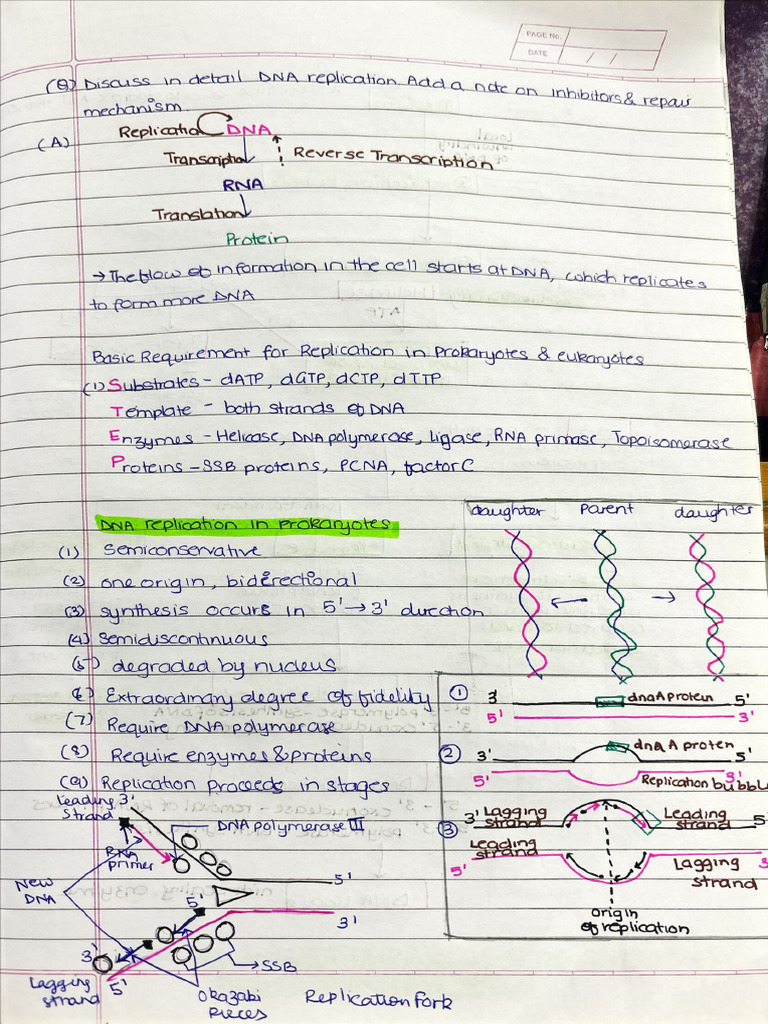 PAGE No.
DATE / /
(Q) Discuss in detail DNA replication. Add a note on inhibitors & repair
mechanism.
(A)
Replicatio DNA
Transcription
Reverse Transcription
RNA
Translation
Protein
→ The flow of information in the cell starts at DNA, which replicates
to form more DNA
Basic Requirement for Replication in prokaryotes & eukaryotes
(1) Substrates - dATP, dGTP, dCTP, dTTP
Template - both strands of DNA
Enzymes - Helicase, DNA polymerase, ligase, RNA primase, Topoisomerase
Proteins - SSB proteins, PCNA, factor C
DNA replication in Prokaryotes
(1) Semiconservative
(2) one origin, bidirectional
(3) synthesis occurs in 5' → 3' direction
(4) Semidiscontinuous
(5) degraded by nucleus
(6) Extraordinary degree of fidelity
(7) Require DNA polymerase
(8) Require enzymes & proteins
(9) Replication proceeds in stages
daughter parent daughter
① 3' dnaA protein 5'
5' 3'
② 3' dnaA proten 5'
5' 3'
Replication bubble
③ 3' Lagging strand Leading strand 5'
Leading strand
5' Lagging strand 3'
origin
of replication
Leading 3'
strand
DNA polymerase III
RNA
primer
5'
New
DNA
5'
3'
3'
SSB
Lagging
strand
5'
Okazaki
pieces
Replication fork